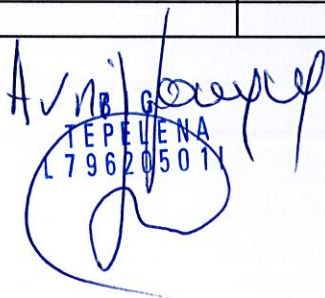 Avni
B G
TEPELENA
L79620501